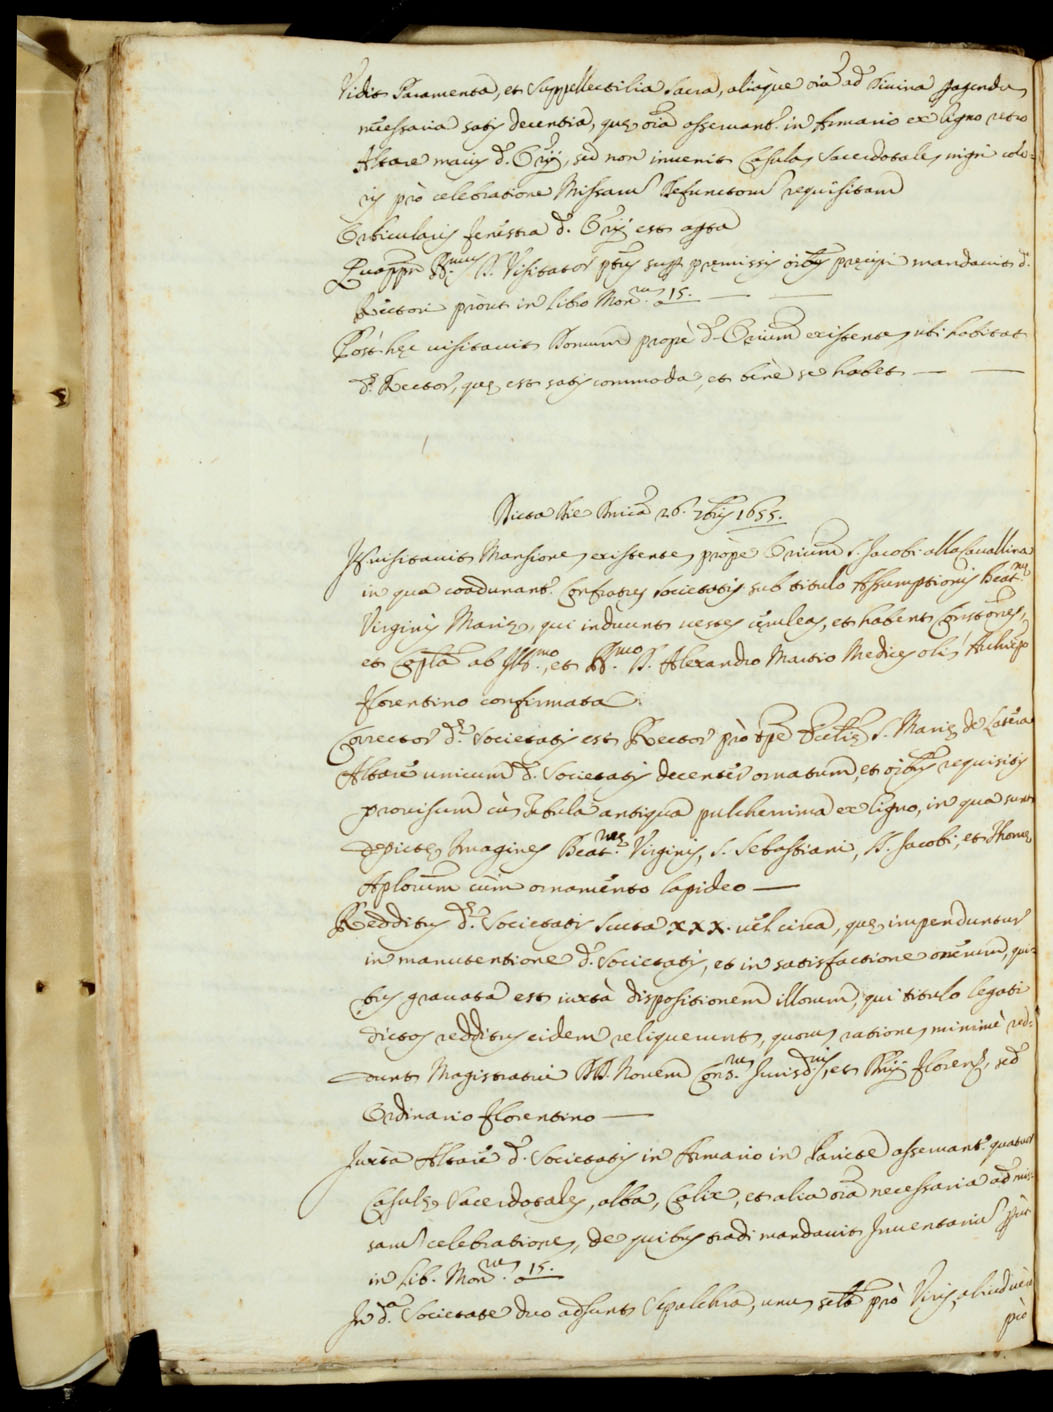 Vidit Paramenta, et Suppellectilia Sacra, aliàque oîa ad Divina pagenda
necessaria satis decentia, quę oîa asservant.r in Armario ex ligno retro
Altare maius d. Orÿ, sed non invenit Casulas Sacerdotales nigri colo=
ris prò celebratione Missarum Defunctorum requisitam
Orbicularis fenestra d. Orÿ est apta
Quapp R.mus D. Visitator ptus sup pręmissis oîbus pręcipi mandavit d.
Rectori proùt in libro Mon.rum a 15.
Post hęc visitavit Domum propè d. Orium existentem ubi habitat
d.s Rector, quę est satis commoda, et benè se habet —
Dicta Die Dnica 26. 7bris 1655.
Is visitavit Mansionem existentem propè Orium S. Jacobi alla Cavallina
in qua coadunant.r Confratres Societatis sub titulo Assumptionis Beat.mę
Virginis Marię, qui induunt vestes cęruleas, et habent Constones,
et Capla ab Ill.mo, et R.mo D. Alexandro Martio Medices olim Archiepo
Florentino confirmata.
Corrector d.ę Societatis est Rector prò tpe Eccl.ię S. Marię de Latera
Altare unicum d. Societatis decenter ornatum, et oîbus requisitis
provisum cùm tabula antiqua pulcherrima ex ligno, in qua sunt
depictę Imagines Beat.mę Virginis, S. Sebastiani, D. Jacobi, et Thomę
Aplorum cùm ornamento lapideo —
Redditus d.ę Societatis Scuta xxx. vel circa, quę impenduntur
in manutentione d. Societatis, et in satisfactione onerum, qui=
bus gravata est iuxtà dispositionem illorum, qui titulo legati
dictos redditus eidem reliquerunt, quorum rationes minimè red=
dunt Magistratui DD. Novem Cons.rum Jurisd.nis, et Dnÿ Florenę, sed
Ordinario Florentino —
Juxta Altare d. Societatis in Armario in Pariete asservant.r quatuor
Casulę Sacerdotales, alba, Calix, et alia oîa necessaria ad mis=
sarum celebrationem, de quibus tradi mandavit Inventarium prùt
in lib. Mon.rum a 15.
In d.a Societate duo adsunt Sepulchra, unum sclt prò Viris, aliud verò
prò